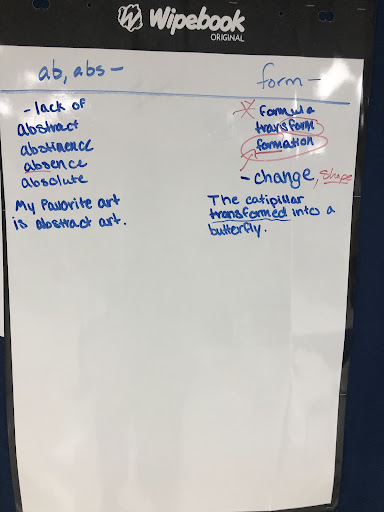 Wipebook
ORIGINAL
ab, abs -
- lack of
abstract
abstinence
absence
absolute
My Favorite art
is abstract art.
form -
formula
transform
formation
- change, shape
The catipillar
transformed into a
butterfly.